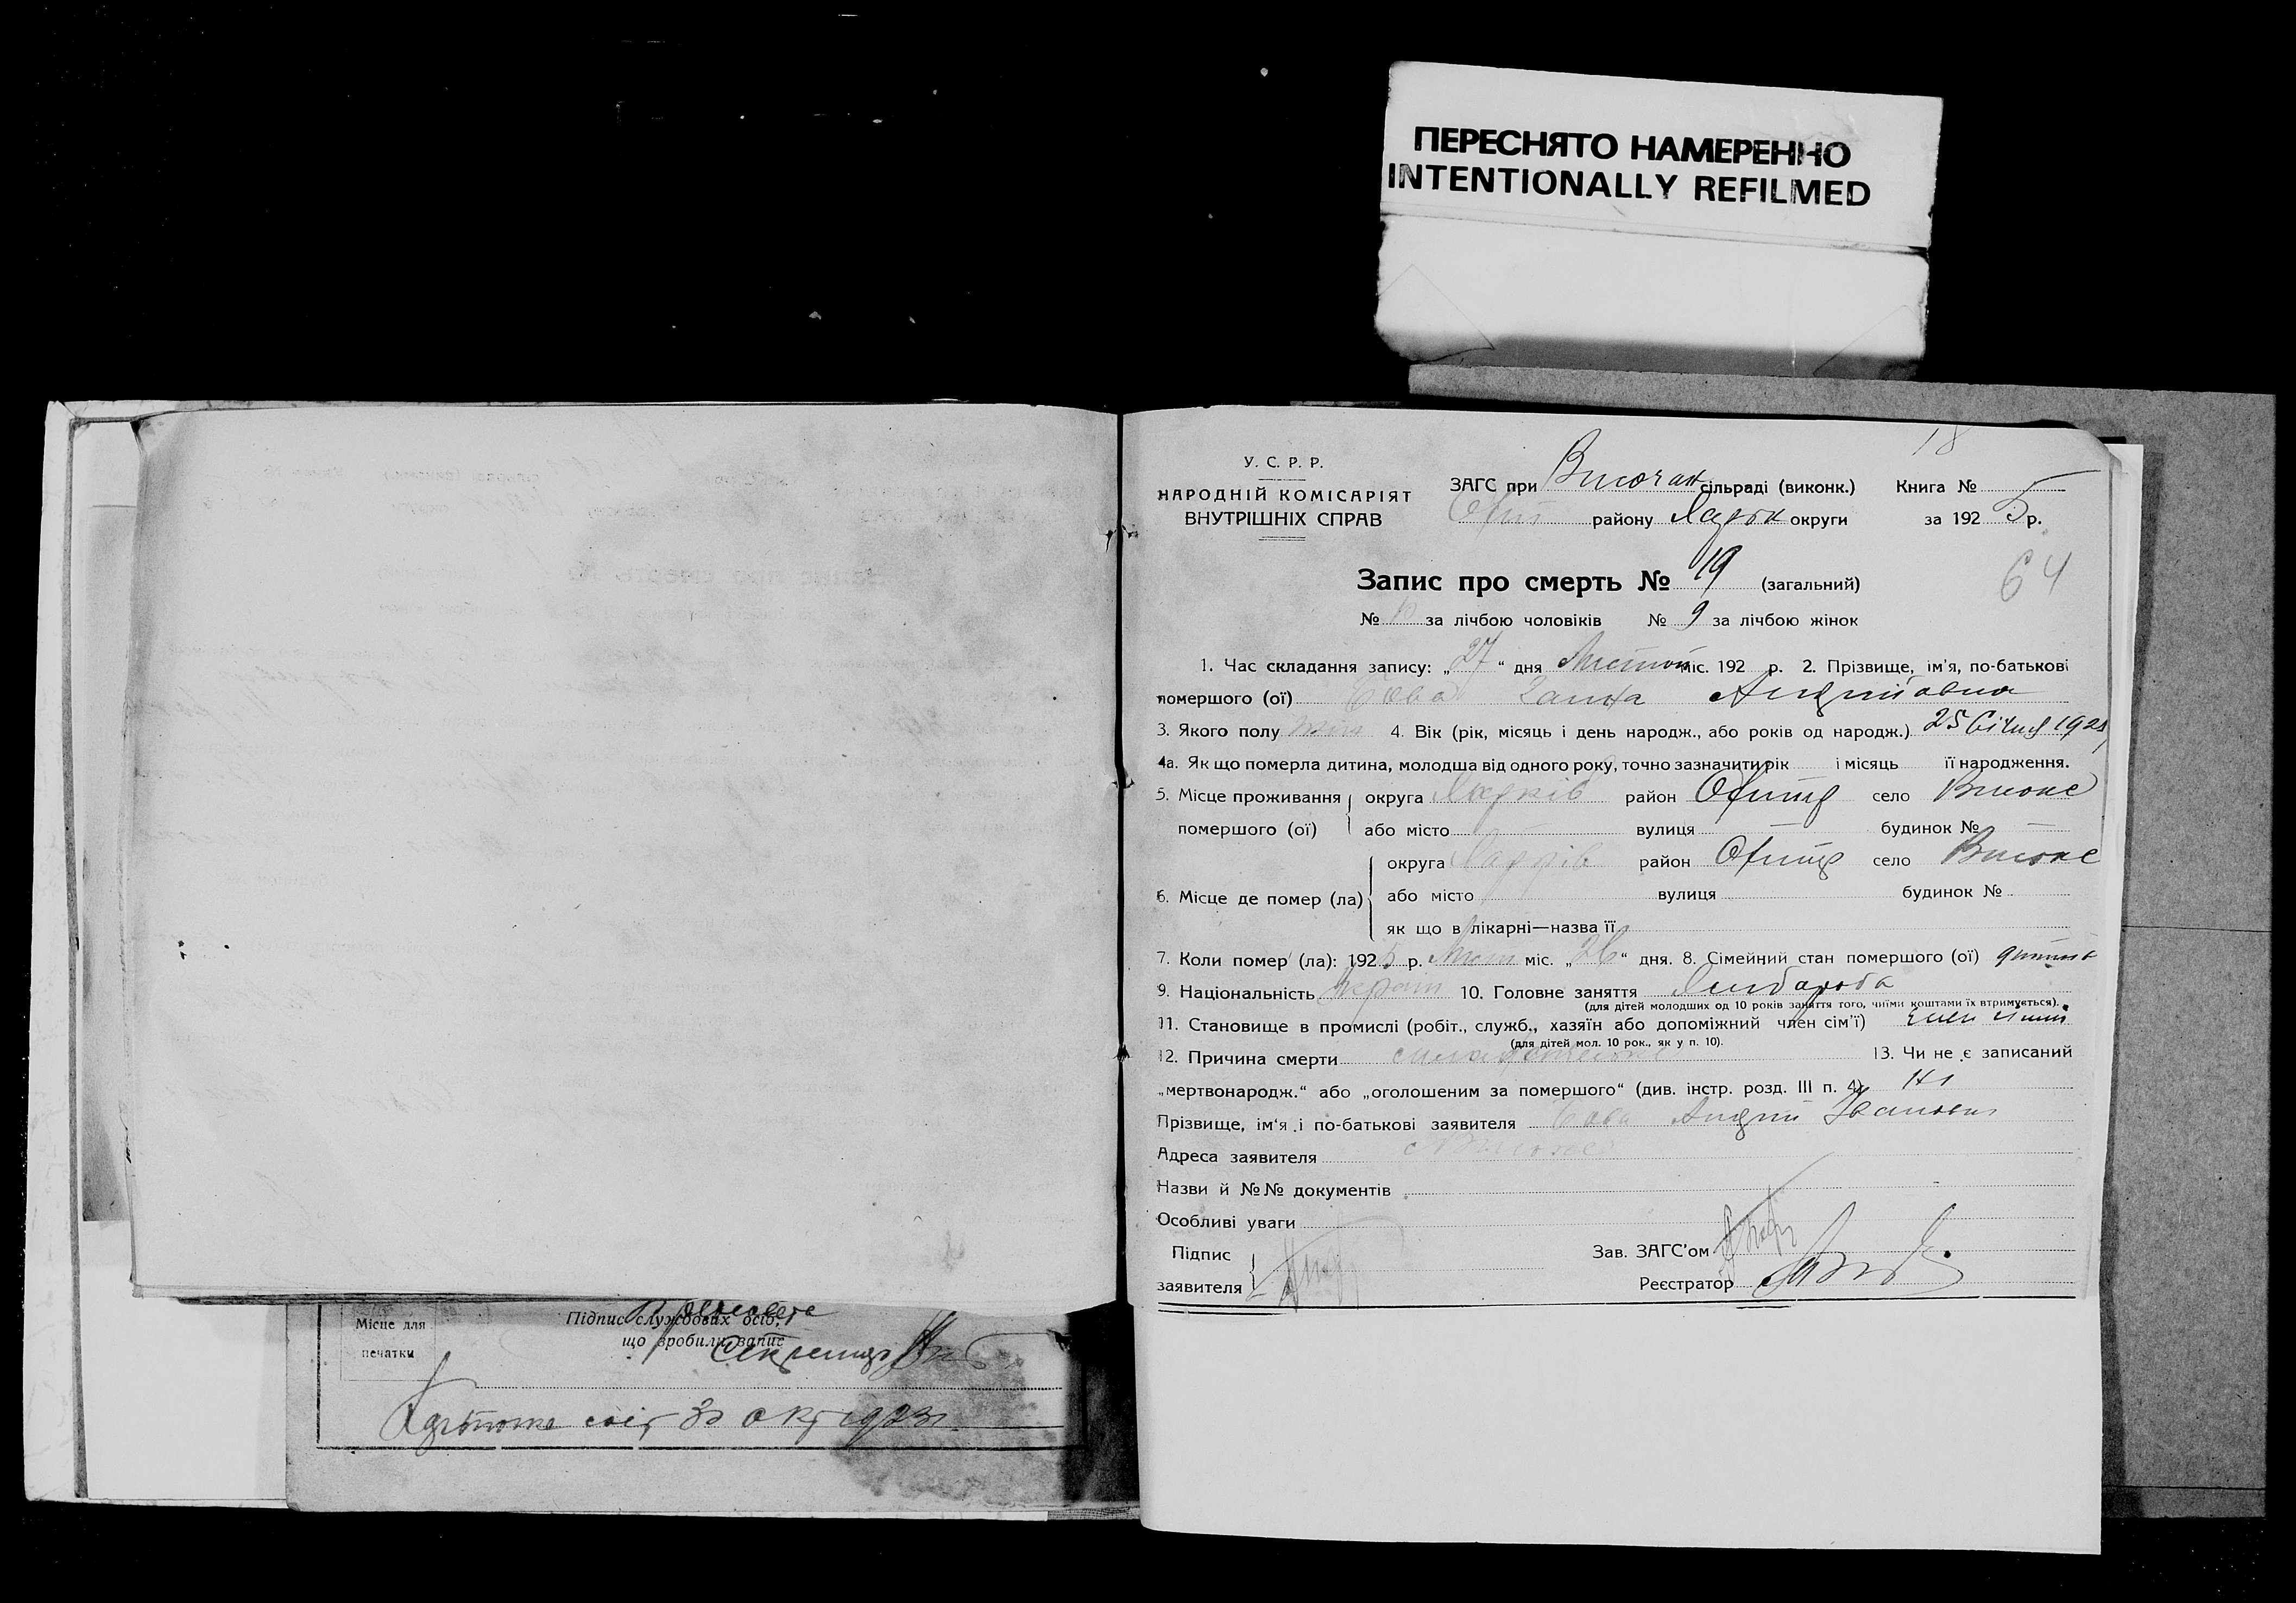 ПЕРЕСНЯТО НАМЕРЕННО
INTENTIONALLY REFILMED
18
У. С. Р. Р.
НАРОДНІЙ КОМІСАРІЯТ
ВНУТРІШНІХ СПРАВ
ЗАГС при Височан сільраді (виконк.) Книга №
району Харьк округи за 192 5 р.
64
Запис про смерть № 19 (загальний)
№ 10 за лічбою чоловіків № 9 за лічбою жінок
1. Час складання запису: „27“ дня міс. 192 р. 2. Прізвище, ім’я, по-батькові
помершого (ої) Ганна Андріївна
3. Якого полу жін 4. Вік (рік, місяць і день народж., або років од народж.) 25 Січня
4а. Як що померла дитина, молодша від одного року, точно зазначити рік і місяць її народження.
5. Місце проживання округа Харків район село Високе
помершого (ої) або місто — вулиця — будинок № —
округа Харків район село Високе
6. Місце де помер (ла) або місто вулиця будинок №
як що в лікарні—назва її
7. Коли помер (ла): 192 5 р. міс. „26“ дня. 8. Сімейний стан помершого (ої) дитина
9. Національність Україн 10. Головне заняття Хлібороба
(для дітей молодших од 10 років заняття того, чиїми коштами їх втримується).
11. Становище в промислі (робіт., служб., хазяїн або допоміжний член сім’ї) член
(для дітей мол. 10 рок., як у п. 10).
12. Причина смерти 13. Чи не є записаний
„мертвонародж.“ або „оголошеним за помершого“ (див. інстр. розд. III п. 4) Ні
Прізвище, ім’я і по-батькові заявителя Андрій Іванович
Адреса заявителя с Високе
Назви й №№ документів
Особливі уваги
Підпис
заявителя
Зав. ЗАГС’ом
Реєстратор
Місце для
печатки
Підпис службових осіб,
що зробили запис
Секретарь
30 окт 1923